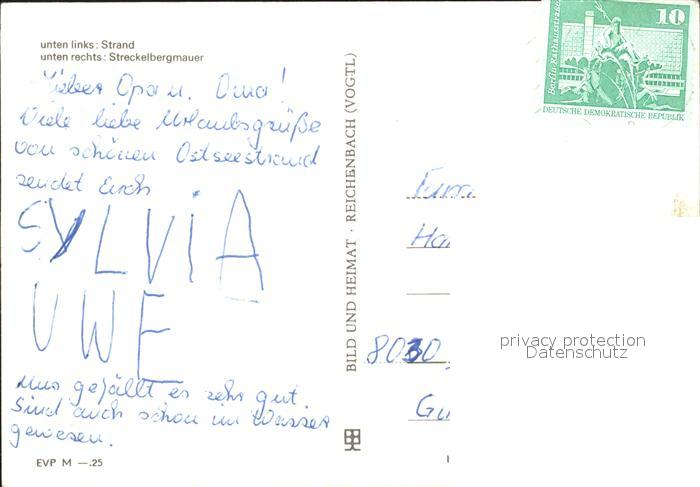 unten links: Strand
unten rechts: Streckelbergmauer
Lieber Opa u. Oma!
Viele liebe Urlaubsgrüße
von schönen Ostseestrand
sendet Euch
SYLVIA
UWE
Uns gefällt es sehr gut.
Sind auch schon im Wasser
gewesen.
EVP M —.25
BILD UND HEIMAT · REICHENBACH (VOGTL)
10
Berlin-Rathausstraße
DEUTSCHE DEMOKRATISCHE REPUBLIK
Fam
Ha
8030
Gu
privacy protection
Datenschutz